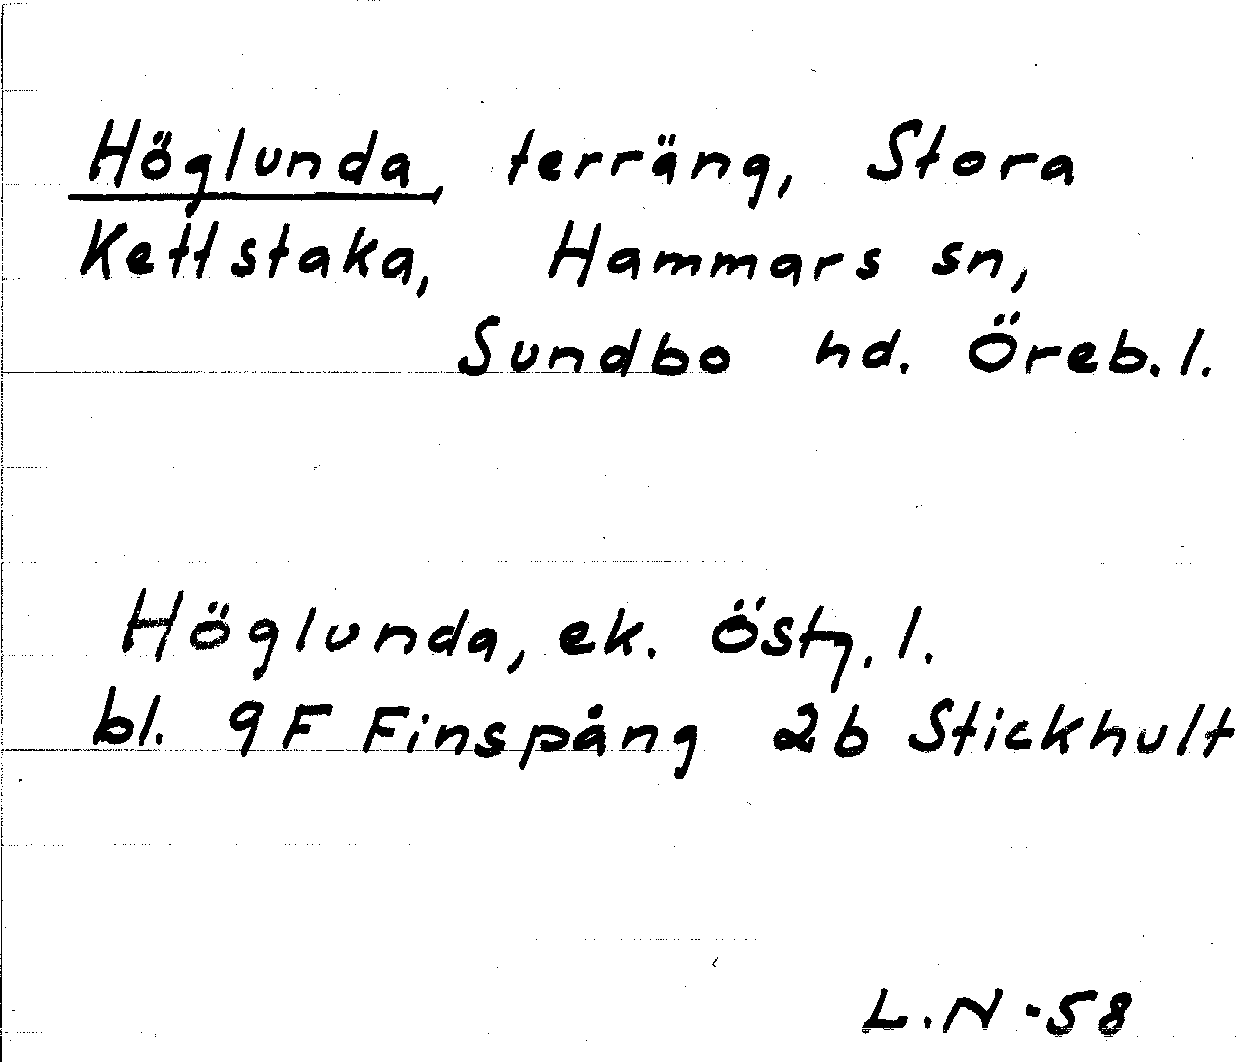 Höglunda, terräng, Stora
Kettstaka, Hammars sn,
Sundbo hd. Öreb. l.
Höglunda, ek. Östg. l.
bl. 9F Finspång 2b Stickhult
L.N -58